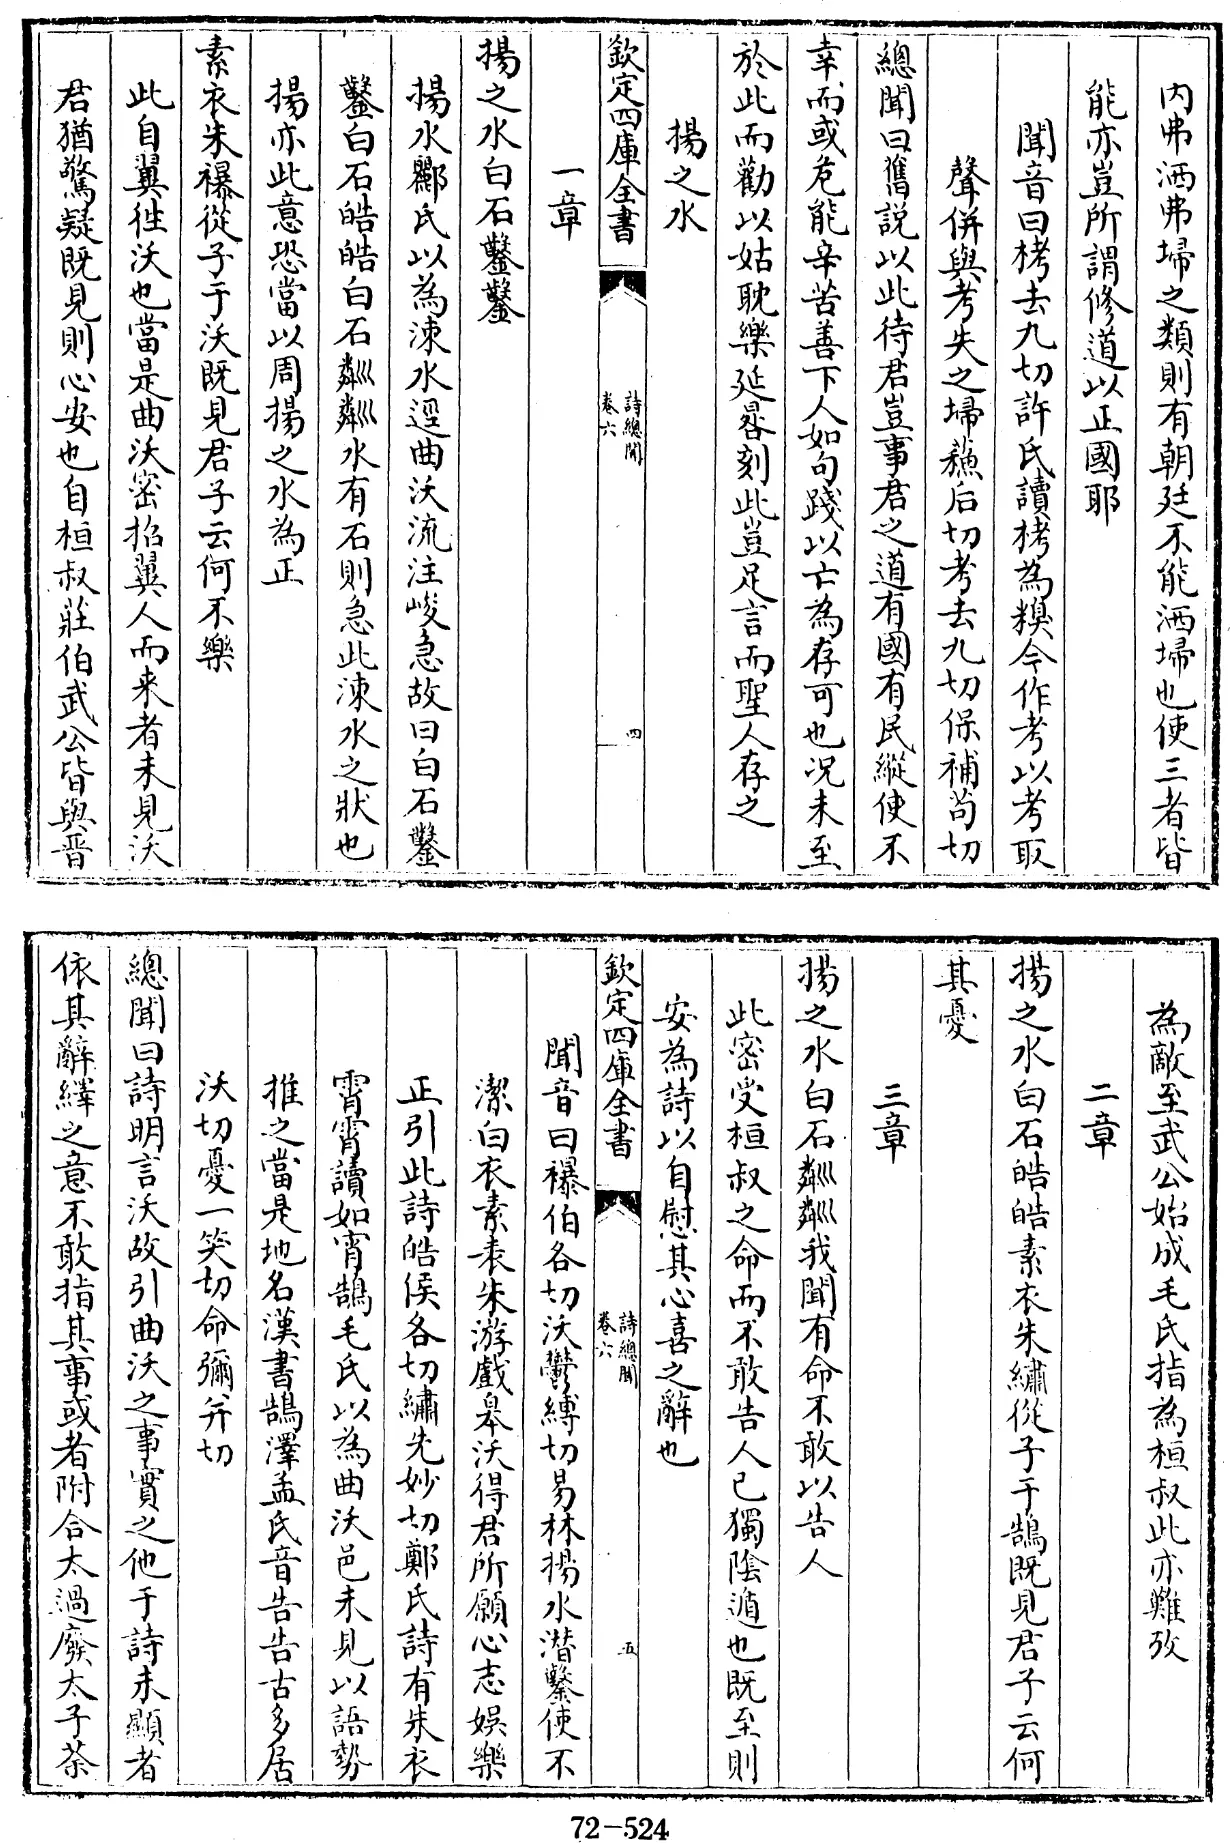 内弗洒弗埽之類則有朝廷不能洒埽也使三者皆
能亦豈所謂修道以正國耶
聞音曰栲去九切許氏讀栲為糗今作考以考取
聲併與考失之埽蘓后切考去九切保補苟切
總聞曰舊說以此待君豈事君之道有國有民縱使不
幸而或危能辛苦善下人如句踐以亡為存可也况未至
於此而勸以姑耽樂延晷刻此豈足言而聖人存之
揚之水
欽定四庫全書
詩總聞
卷六
四
一章
揚之水白石鑿鑿
揚水酈氏以為涑水逕曲沃流注峻急故曰白石鑿
鑿白石皓皓白石粼粼水有石則急此涑水之狀也
揚亦此意恐當以周揚之水為正
素衣朱襮從子于沃既見君子云何不樂
此自翼徃沃也當是曲沃密招翼人而来者未見沃
君猶驚疑既見則心安也自桓叔莊伯武公皆與晉
為敵至武公始成毛氏指為桓叔此亦難攷
二章
揚之水白石皓皓素衣朱繡從子于鵠既見君子云何
其憂
三章
揚之水白石粼粼我聞有命不敢以告人
此密受桓叔之命而不敢告人已獨陰遁也既至則
安為詩以自慰其心喜之辭也
欽定四庫全書
詩總聞
卷六
五
聞音曰襮伯各切沃鬱縛切易林揚水潛鑿使不
潔白衣素表朱游戲皋沃得君所願心志娛樂
正引此詩皓侯各切繡先妙切鄭氏詩有朱衣
霄霄讀如宵鵠毛氏以為曲沃邑未見以語勢
推之當是地名漢書鵠澤孟氏音告告古多居
沃切憂一笑切命彌并切
總聞曰詩明言沃故引曲沃之事實之他于詩未顯者
依其辭繹之意不敢指其事或者附合太過廢太子荼